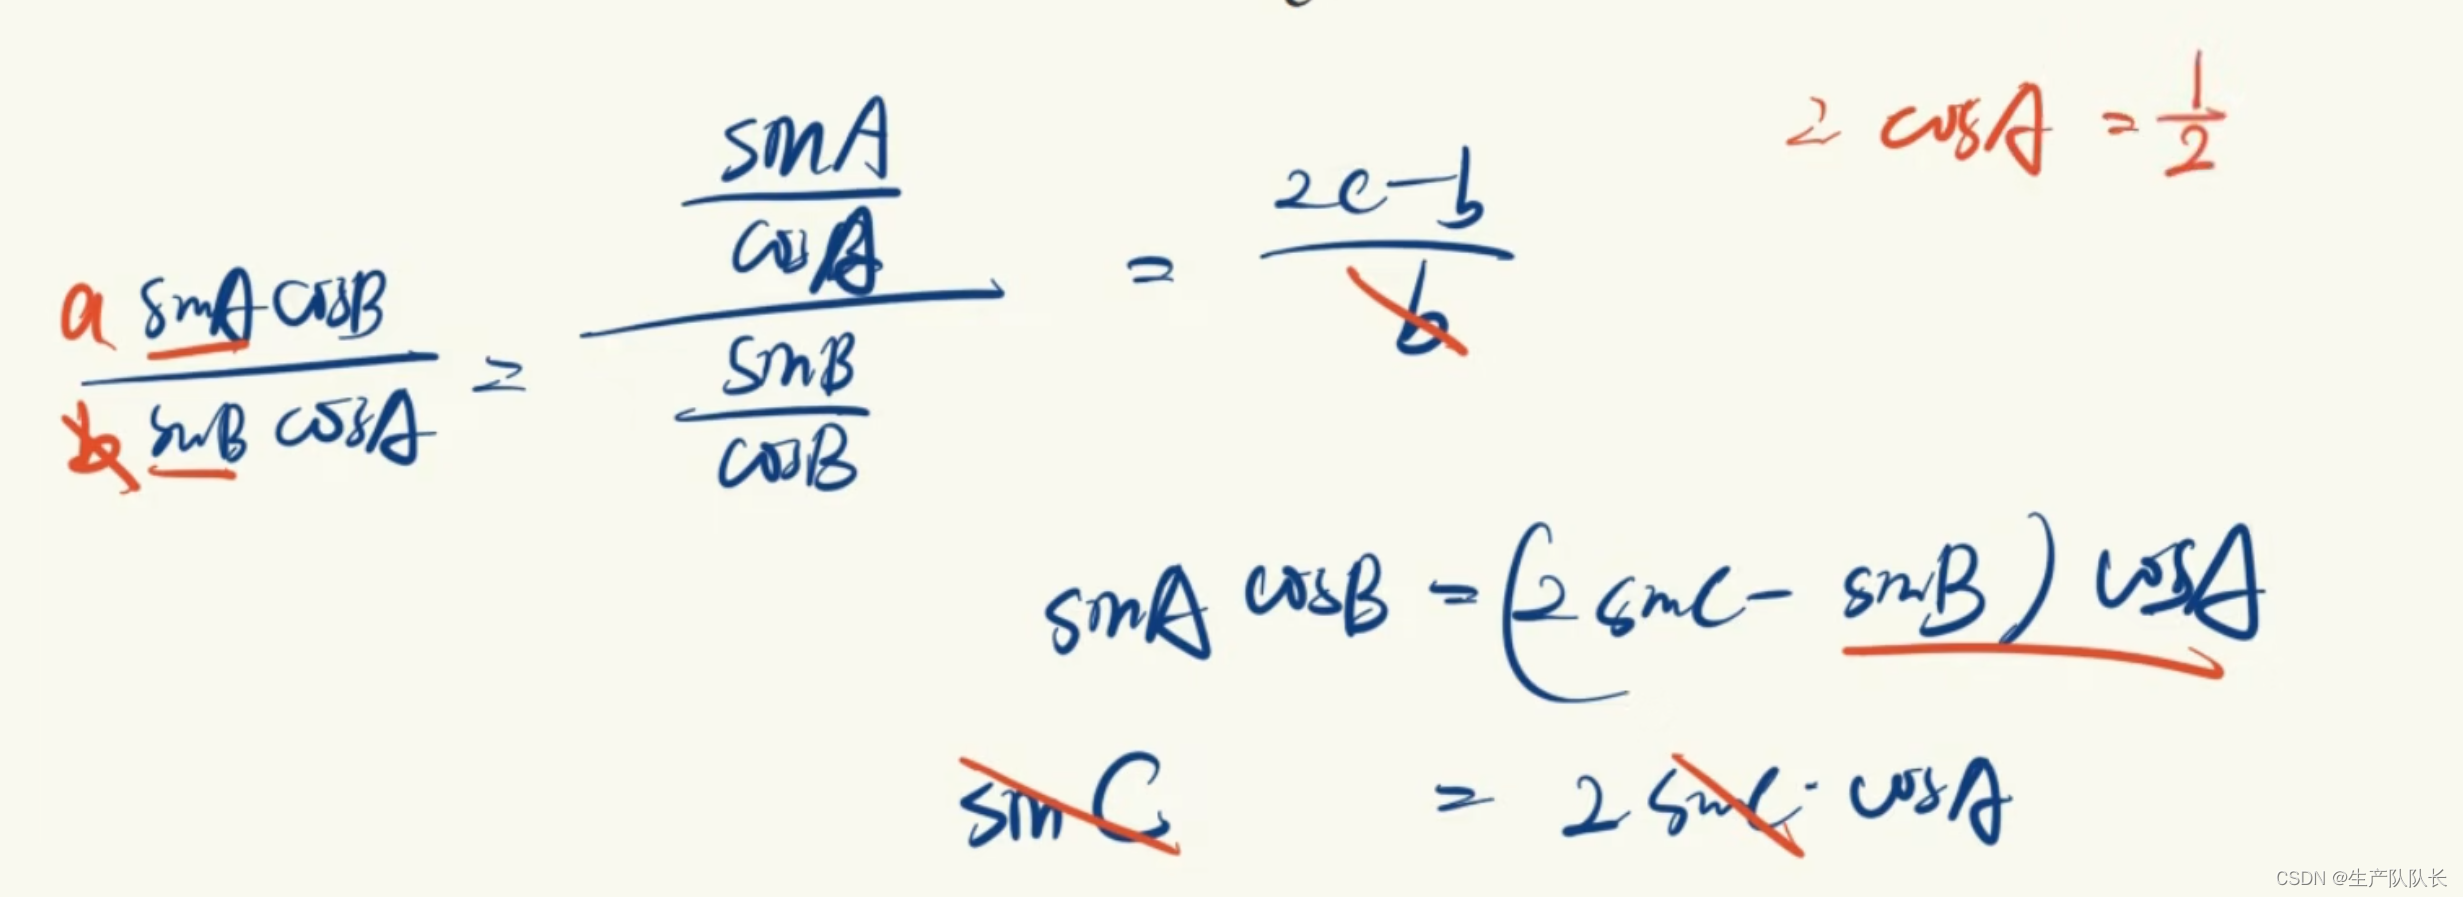 2 cosA = 1/2
a sinA cosB / b sinB cosA = (sinA / cosA) / (sinB / cosB) = (2c-b) / b
sinA cosB = (2 sinC - sinB) cosA
sinC = 2 sinC · cosA
CSDN @生产队队长